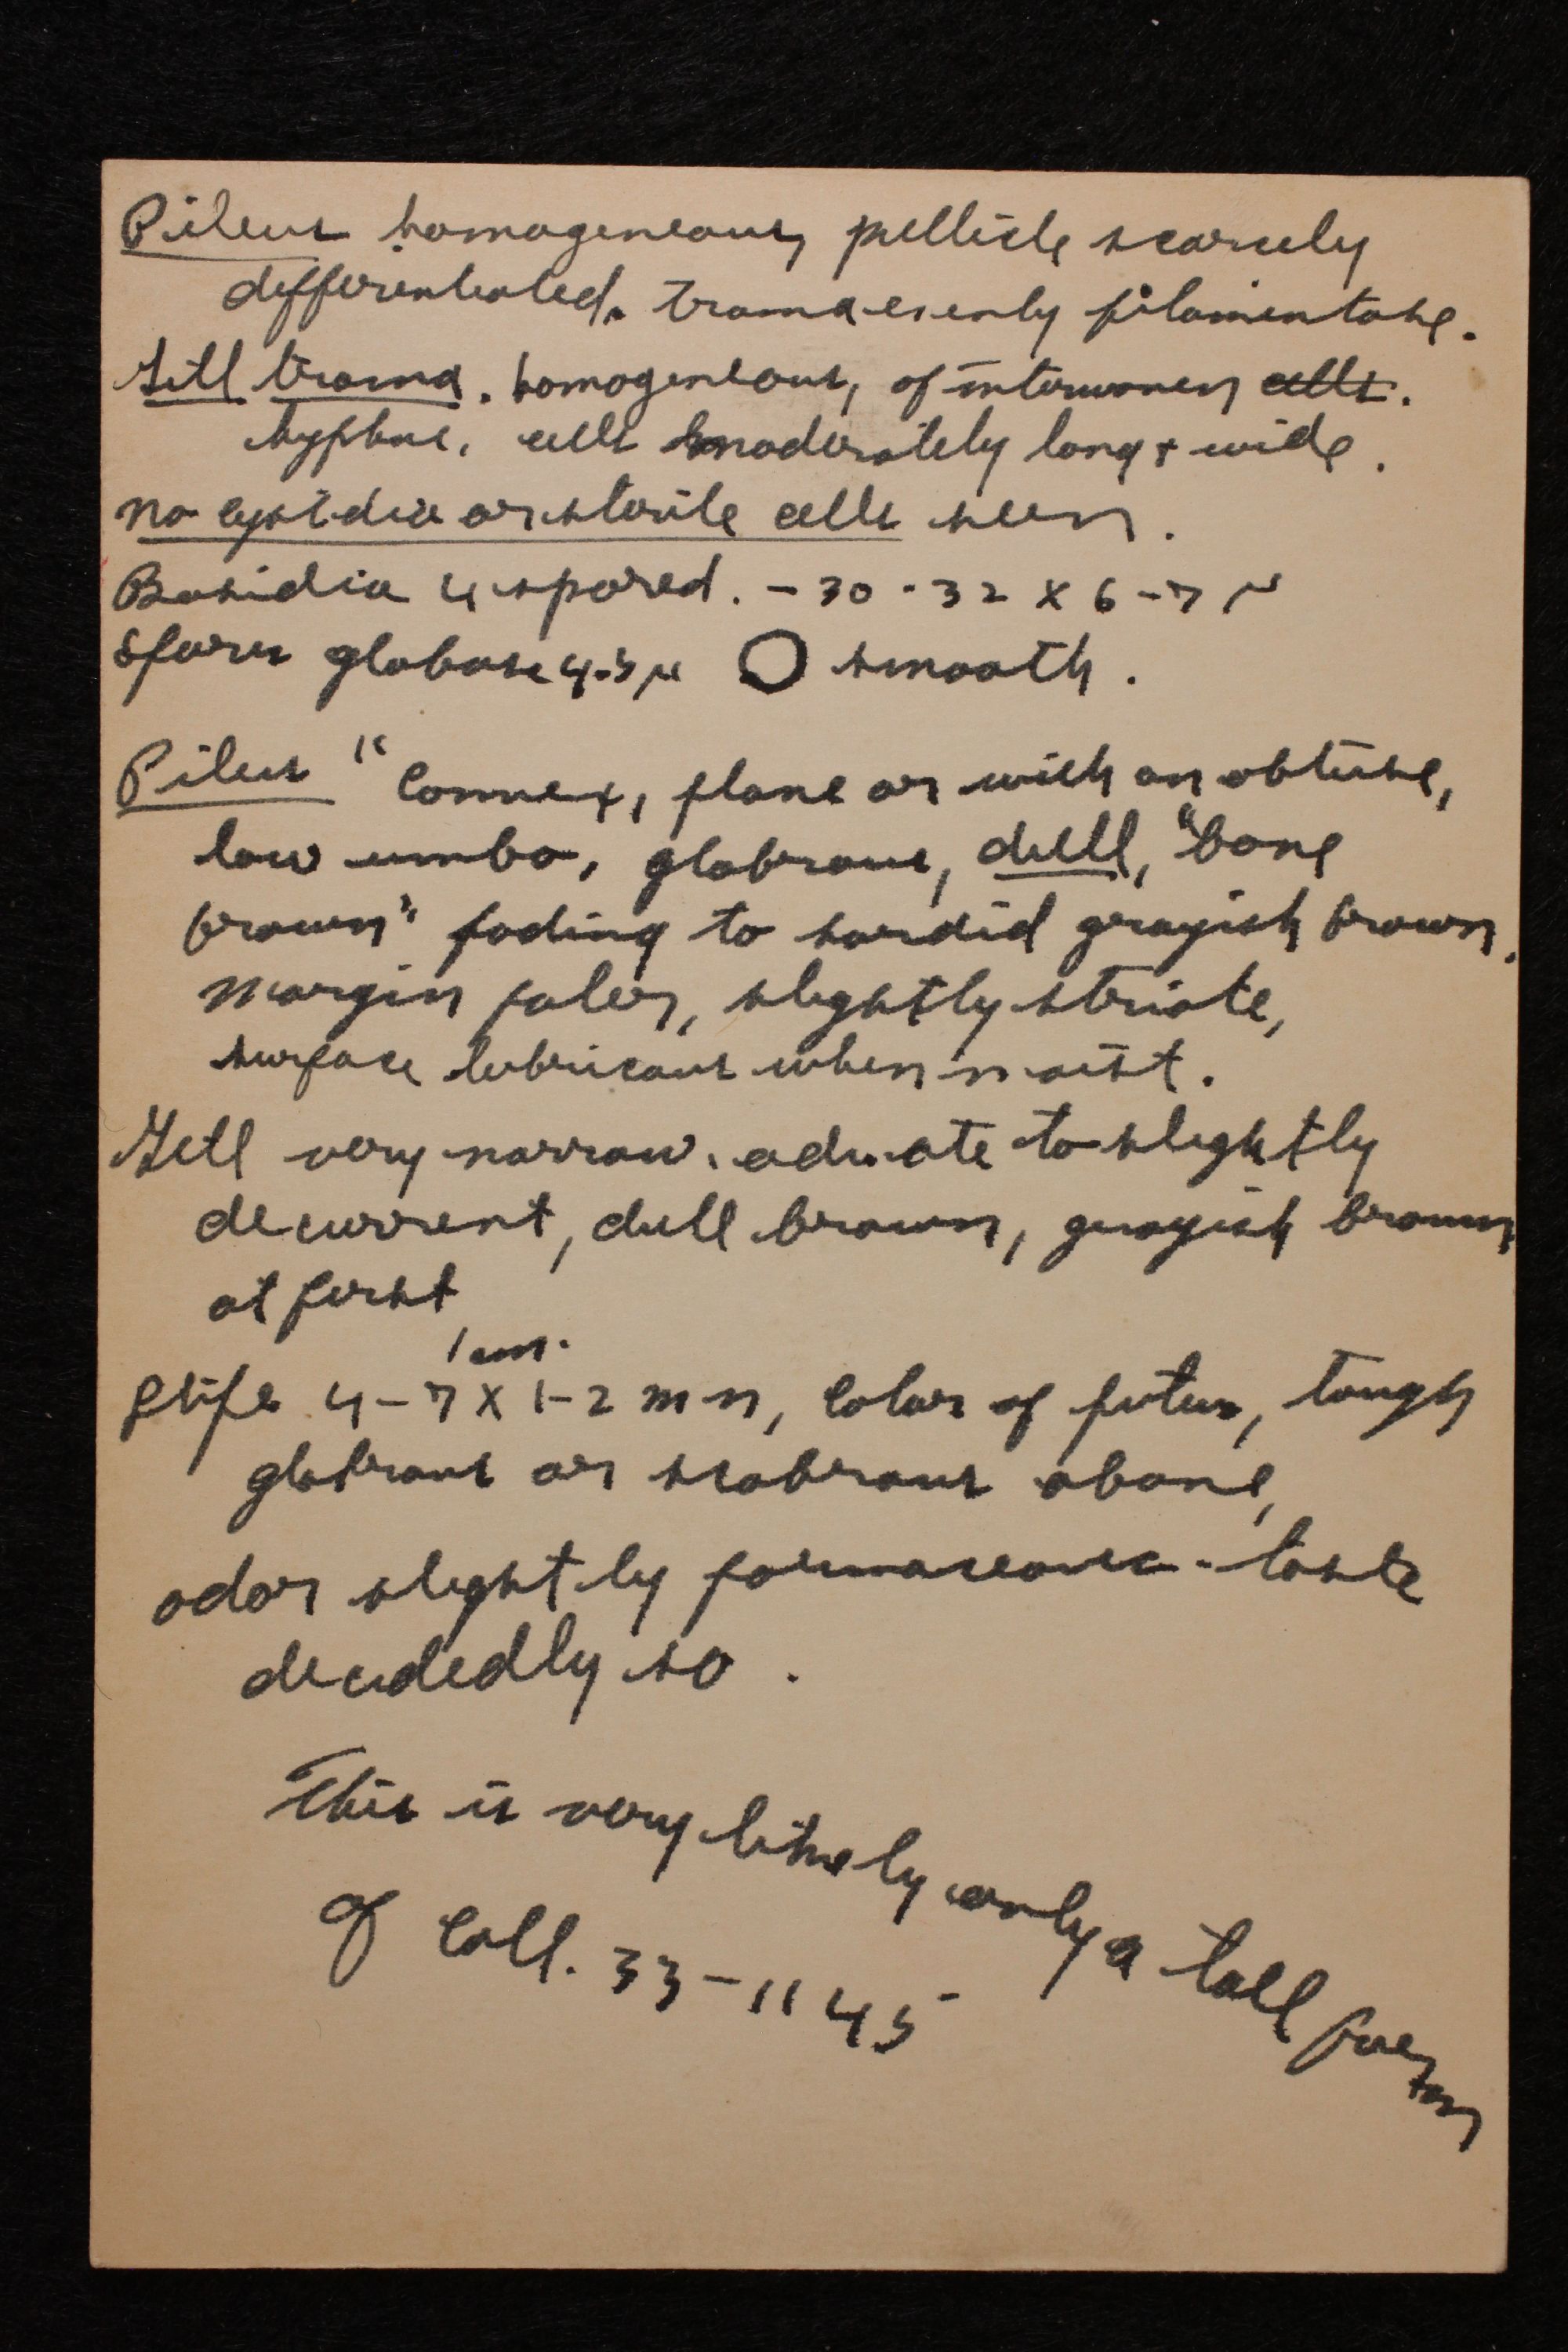 Pileus homogeneous, pellicle scarcely
differentiated. Trama evenly filamentose.
Gill trama. homogeneous, of interwoven cells.
hyphae. cells moderately long + wide.
no cystidia or sterile cells seen.
Basidia 4 spored. - 30-32 x 6-7 μ
Spores globose 4-5 μ smooth.
Pileus " Convex, plane or with an obtuse,
low umbo, glabrous, dull, "bone
brown" fading to sordid grayish brown.
Margin paler, slightly striate,
surface lubricous when moist.
Gill very narrow. adnate to slightly
decurrent, dull brown, grayish brown
at first
1 cm.
Stipe 4-7 x 1-2 mm, Color of pileus, tough
glabrous or scabrous above,
odor slightly farinaceous - taste
decidedly so.
This is very likely only a tall form
of Coll. 33-1145